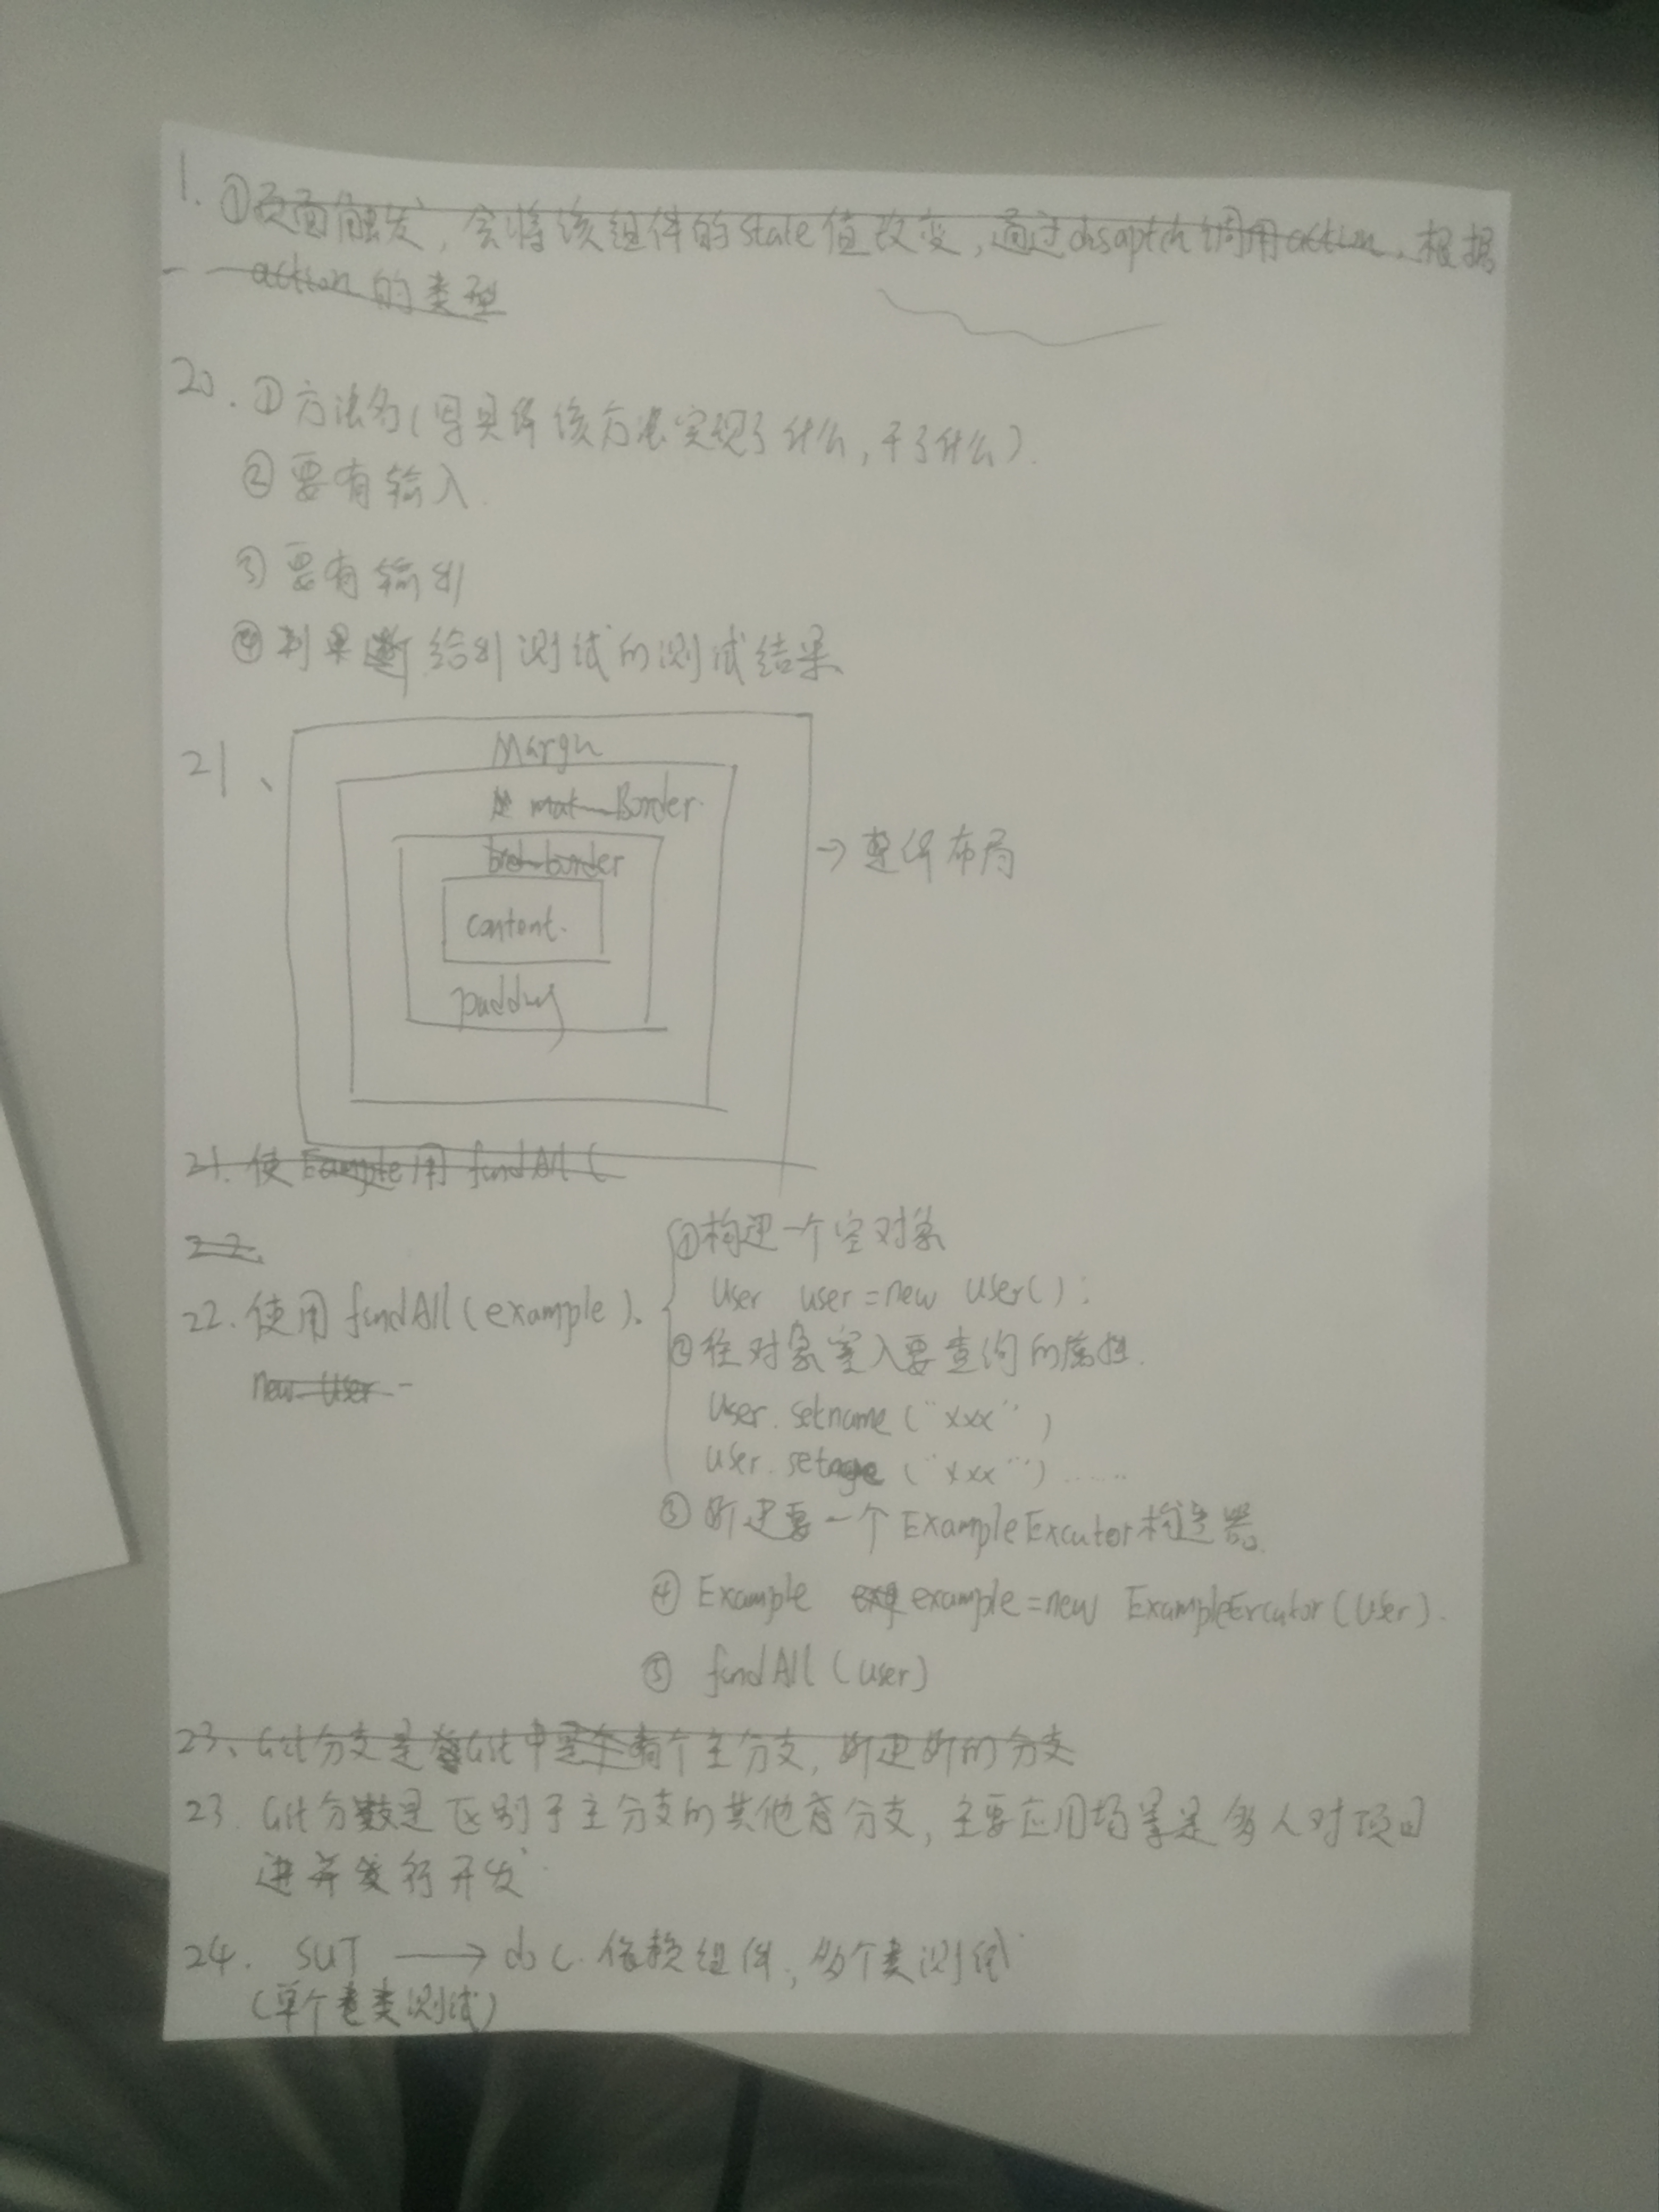 1. ①页面触发，会将该组件的state值改变，通过disaptch调用action，根据
action的类型
20. ①方法名（写具体该方法实现了什么，干了什么）.
②要有输入.
③要有输出
④判断给出测试的测试结果
21、
Margin
Border.
border
content.
padding
→整体布局
21. 使Example用 findAll (
22.
22. 使用 findAll (example).
new User -
①构建一个空对象
User user = new User();
②往对象塞入要查询的属性.
User.setname ("xxx")
user.setage ("xxx") ......
③新建一个ExampleExcutor构造器.
④ Example example = new ExampleExcutor(User).
⑤ findAll (user)
23、Git分支是Git中有个主分支，新建新的分支
23. Git分支是区别于主分支的其他分支，主要应用场景是多人对项目
进行开发.
24. SUT → doc. 依赖组件，多个类测试
(单个类测试)